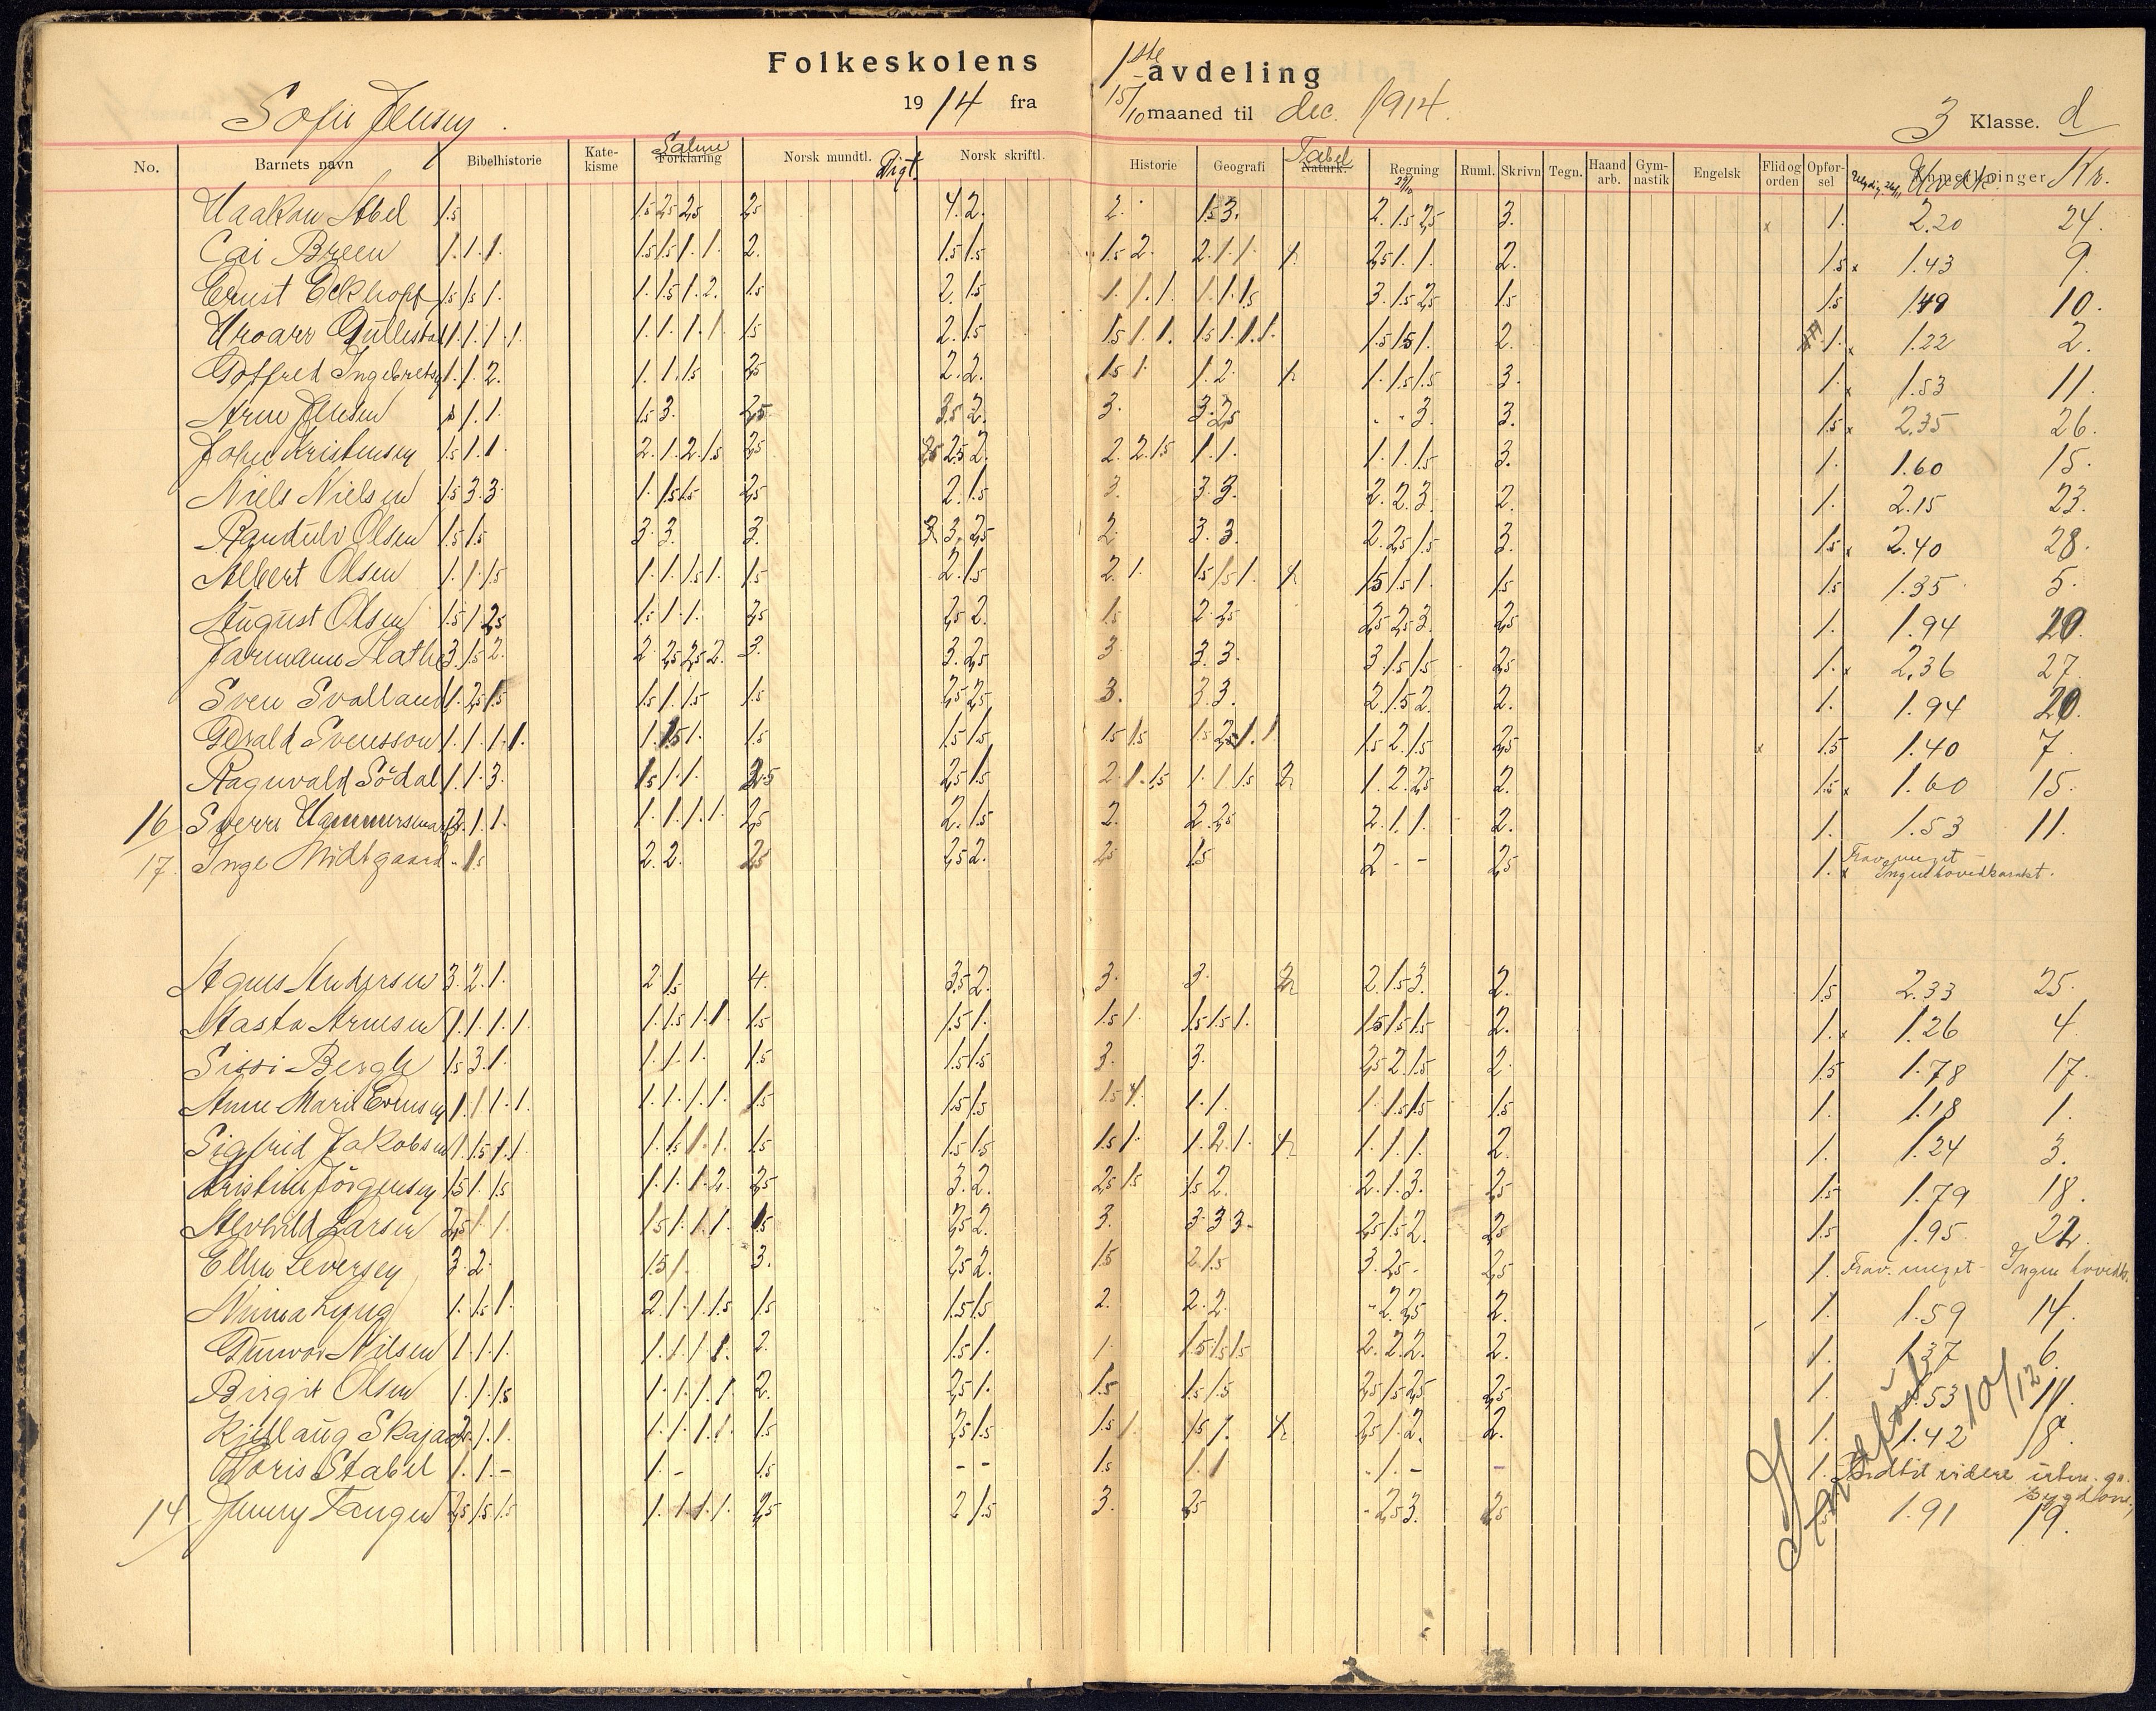 Folkeskolens 1ste avdeling
Sofie Jensen. 1914 fra 15/10 maaned til dec. 1914. 3 Klasse. d
No. Barnets navn Bibelhistorie Kate-kisme Forklaring Salme Norsk mundtl. Digt. Norsk skriftl. Historie Geografi Naturk. Tabel Regning Ruml. Skrivn Tegn. Haand arb. Gym-nastik Engelsk Flid og orden Opfør-sel Anmerkninger Nr.
Haakon Abel 1.5 1.5 2.5 2.5 2.5 4. 2. 2. 1.5 3. 2. 1.5 2.5 3. x 1. 2.20 24.
Cai Breen 1. 1. 1. 1.5 1.5 1. 1. 2. 1.5 1.5 1.5 2. 2. 1. 1. 2.5 1. 1. 2. 1.5 x 1.43 9.
Ernst Eckhoff 1.5 1.5 1. 1. 1.5 1. 2. 1.5 2. 1.5 1. 1. 1. 1. 1. 1.5 3. 1.5 2.5 1.5 1.5 1.49 10.
Hroarr 1. 1. 1. 1. 1. 1. 1. 1. 1.5 2. 1.5 1.5 1. 1. 1.5 1. 1. 1. 1.5 1.5 1. 2. 1. x 1.22 2.
Gotfred Ingebretsen 1. 1. 2. 1. 1. 1.5 2.5 2. 2. 1.5 1. 1. 2. 1. 1.5 1.5 3. 1. x 1.53 11.
Arne Jensen 1. 1. 1.5 3. 2.5 3.5 2. 3. 3. 2.5 - - 3. 3. 1.5 x 2.35 26.
John Kristensen 1.5 1. 1. 2. 1. 2. 1.5 2.5 2.5 2. 2. 2. 1.5 1. 1. 1. 1. 1.5 3. 1. 1.60 15.
Niels Nielsen 1.5 3. 3. 1. 1.5 1.5 2.5 2. 1.5 3. 3. 3. 2. 2. 3. 2. 1. 2.15 23.
Randulv Olsen 1.5 1.5 3. 3. 3. 3. 2.5 2. 3. 3. 2. 2.5 1.5 3. 1.5 x 2.40 28.
Albert Olsen 1. 1. 1.5 1. 1. 1.5 1. 1.5 2. 1.5 2. 1. 1.5 1.5 1. 1.5 1.5 1. 1.5 1.5 1.35 5.
August Olsen 1.5 1. 2.5 1.5 1. 1. 2.5 2.5 2. 1.5 2. 2.5 2.5 2.5 3. 2.5 1. 1.94 20.
Jarmann 3. 1.5 2. 2. 2.5 2.5 2. 3. 3. 2.5 3. 3. 3. 3. 1.5 1.5 2.5 1. x 2.36 27
Sven Svalland 1. 2.5 1.5 1.5 1. 1.5 1.5 2.5 2.5 3. 3. 3. 2. 1.5 2. 2. 1. 1.94 20.
Gerald Svensson 1. 1. 1. 1. 1. 1.5 1. 1.5 1.5 1.5 1.5 1.5 1.5 2.5 1. 1. 1.5 2. 1.5 2.5 x 1.5 1.40 7.
Ragnvald Södal 1. 1. 3. 1.5 1. 1. 2.5 2.5 1.5 2. 1. 1.5 1. 1. 1.5 2. 1. 2. 2.5 2. 1.5 x 1.60 15.
16 Sverre 2. 1. 1. 1. 1. 1. 1. 2.5 2. 1.5 2. 2. 2.5 2. 1. 1. 2. 1. 1.53 11.
17. Inge Midtgaard - 1.5 2. 2. 2.5 2.5 2. 2.5 1.5 2 - - 2.5 1. x Frav. meget Ingen hovedkarakt.
Agnes Andersen 3. 2. 1. 2. 1.5 4. 3.5 2. 3. 3. 2. 1.5 3. 2. 1.5 2.33 25.
Asta Arnesen 1. 1. 1. 1. 1. 1.5 1. 1. 1.5 1.5 1. 1.5 1. 1.5 1.5 1. 1.5 1.5 1.5 2. 1. x 1.26 4.
Sissi Bergh 1.5 3. 1. 1. 1. 1. 1.5 1.5 1.5 3. 3. 2.5 2. 1.5 2. 1.5 1.78 17.
Anne Marie Evensen 1. 1. 1. 1. 1. 1. 1. 1. 1.5 1.5 1.5 1.5 1. 1. 1. 1. 1.5 1.5 1.5 1. 1.18 1.
Sigfrid Jakobsen 1. 1.5 1. 1. 1. 1.5 1. 1. 1.5 1.5 1.5 1.5 1. 1. 2. 1. 1. 1. 1. 2. 1. 1.24 3.
Kristine Jörgensen 1.5 1. 1.5 1. 1. 1. 2. 2.5 3. 2. 2.5 1.5 1.5 2. 2. 1. 3. 2.5 1.5 1.79 18.
Alvhild Larsen 2.5 1. 1. 1.5 1. 1. 1. 1.5 2.5 2. 3. 3. 3. 3. 2.5 1.5 2. 2.5 1.5 1.95 22.
Ellen Seversen 3. 2. 1.5 1. 3. 2.5 2. 1.5 2. 1.5 3. 2.5 - 2.5 1. Frav. meget - Ingen hovedk.
Lyng 1. 1.5 1. 2. 1. 1. 1.5 1.5 1.5 1.5 2. 2. 2. - 2. 2.5 2. 1. 1.59 14.
Gunvor Nilsen 1. 1. 1. 1. 1. 1. 1. 2. 1.5 1. 1. 1.5 1.5 1.5 2. 2. 2. 2. 1. 1.37 6.
Birgit Olsen 1. 1. 1.5 1. 1. 1. 1. 2. 2.5 1. 1.5 1.5 1.5 2.5 1.5 2.5 2.5 1. 1.53 11.
Kjellaug 2. 1. 1. 1. 1. 1. 1. 1.5 2.5 1.5 1.5 1. 1.5 1. 2.5 1. 2. 2. 1. 1.42 8.
Doris Stabel 1. 1. - 1. - 1.5 - - 1.5 1. 1 - 1. - - 1. Indtil videre utm. gr. sygdom
14 Jenny Tangen 2.5 1.5 1.5 1. 1. 1. 1. 2.5 2 1.5 3. 2.5 - 2.5 3. 2.5 1.91 19.
10/12